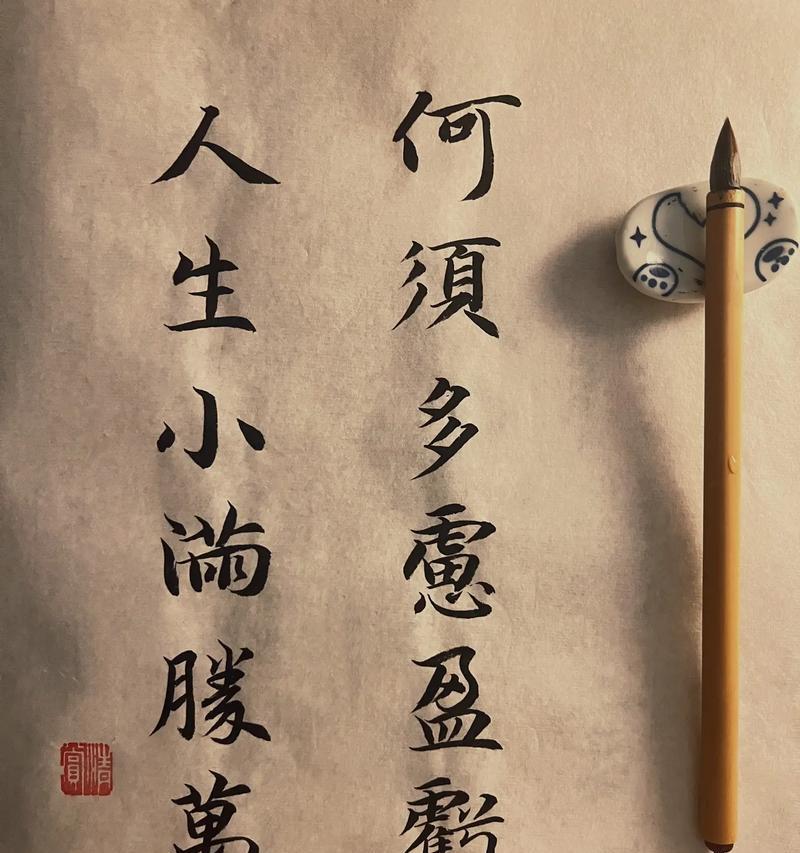 何須多慮盈虧
人生小滿勝萬